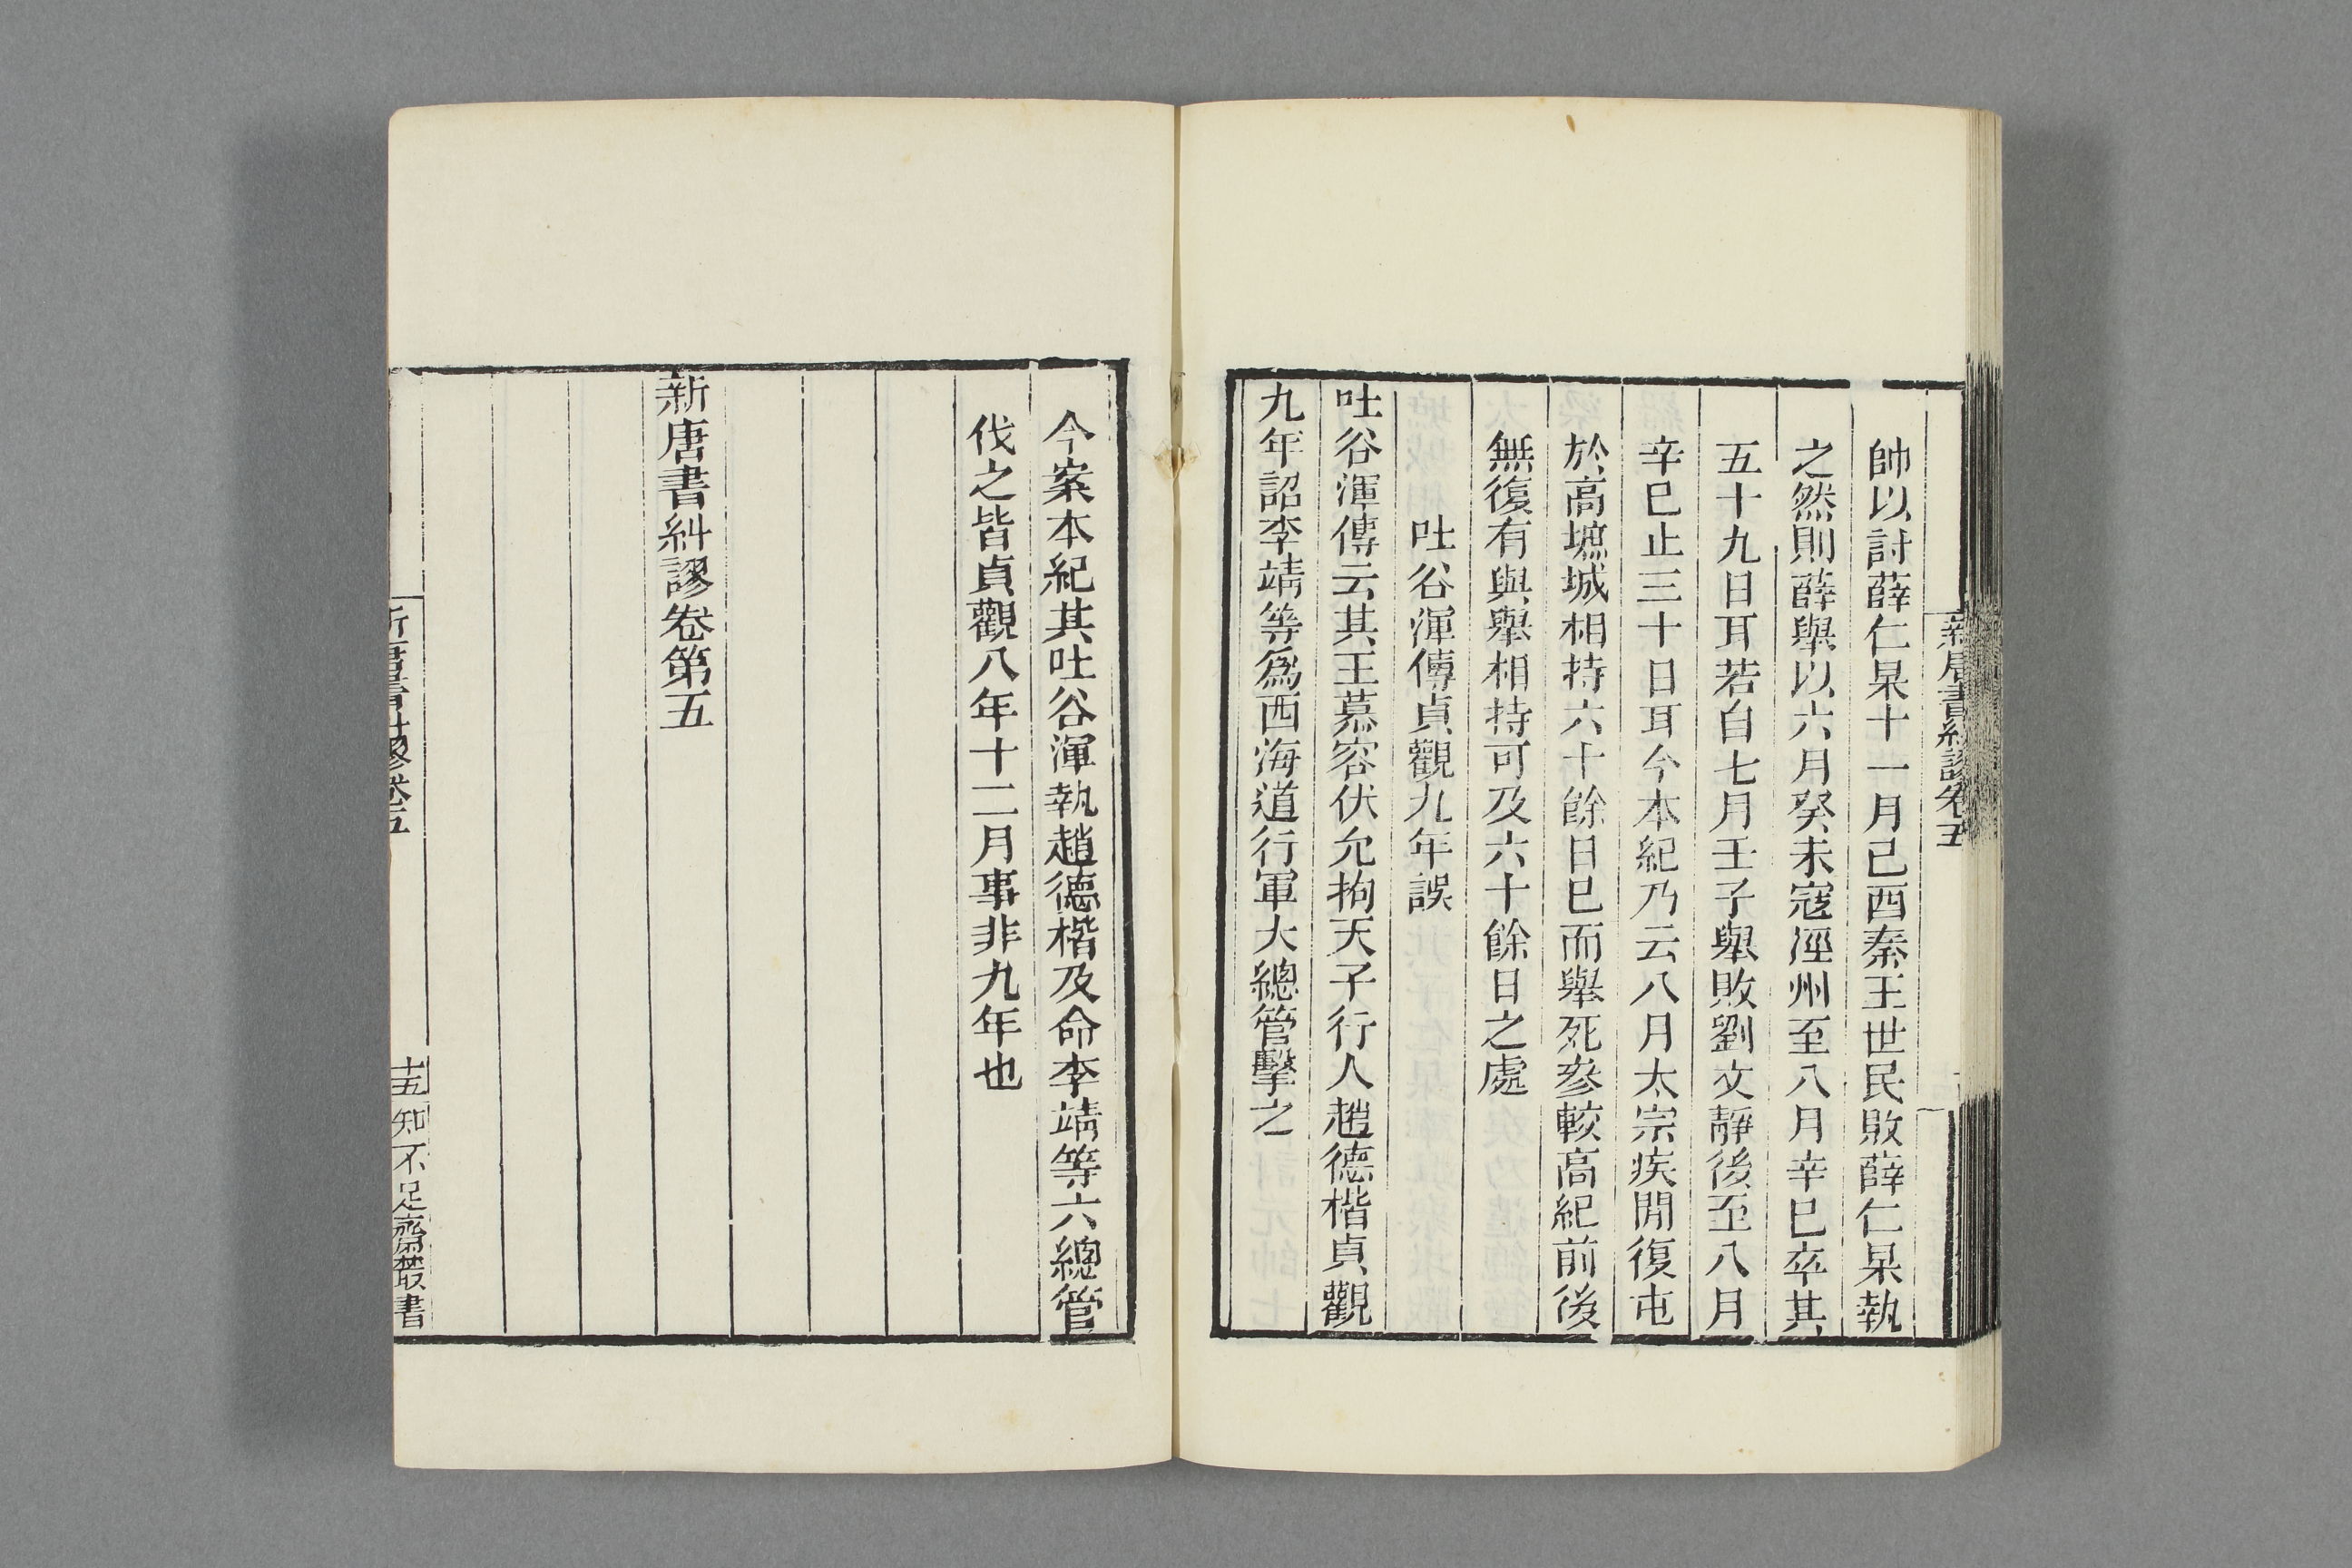 新唐書糾謬卷五
帥以討薛仁杲十一月己酉秦王世民敗薛仁杲執
之然則薛舉以六月癸未寇涇州至八月辛巳卒其
五十九日耳若自七月壬子舉敗劉文靜後至八月
辛巳止三十日耳今本紀乃云八月太宗疾閒復屯
於高墌城相持六十餘日巳而舉死參較高紀前後
無復有與舉相持可及六十餘日之處
吐谷渾傳貞觀九年誤
吐谷渾傳云其王慕容伏允拘天子行人趙德楷貞觀
九年詔李靖等爲西海道行軍大總管擊之
今案本紀其吐谷渾執趙德楷及命李靖等六總管
伐之皆貞觀八年十二月事非九年也
新唐書糾謬卷第五
新唐書糾謬卷五
十五
知不足齋叢書